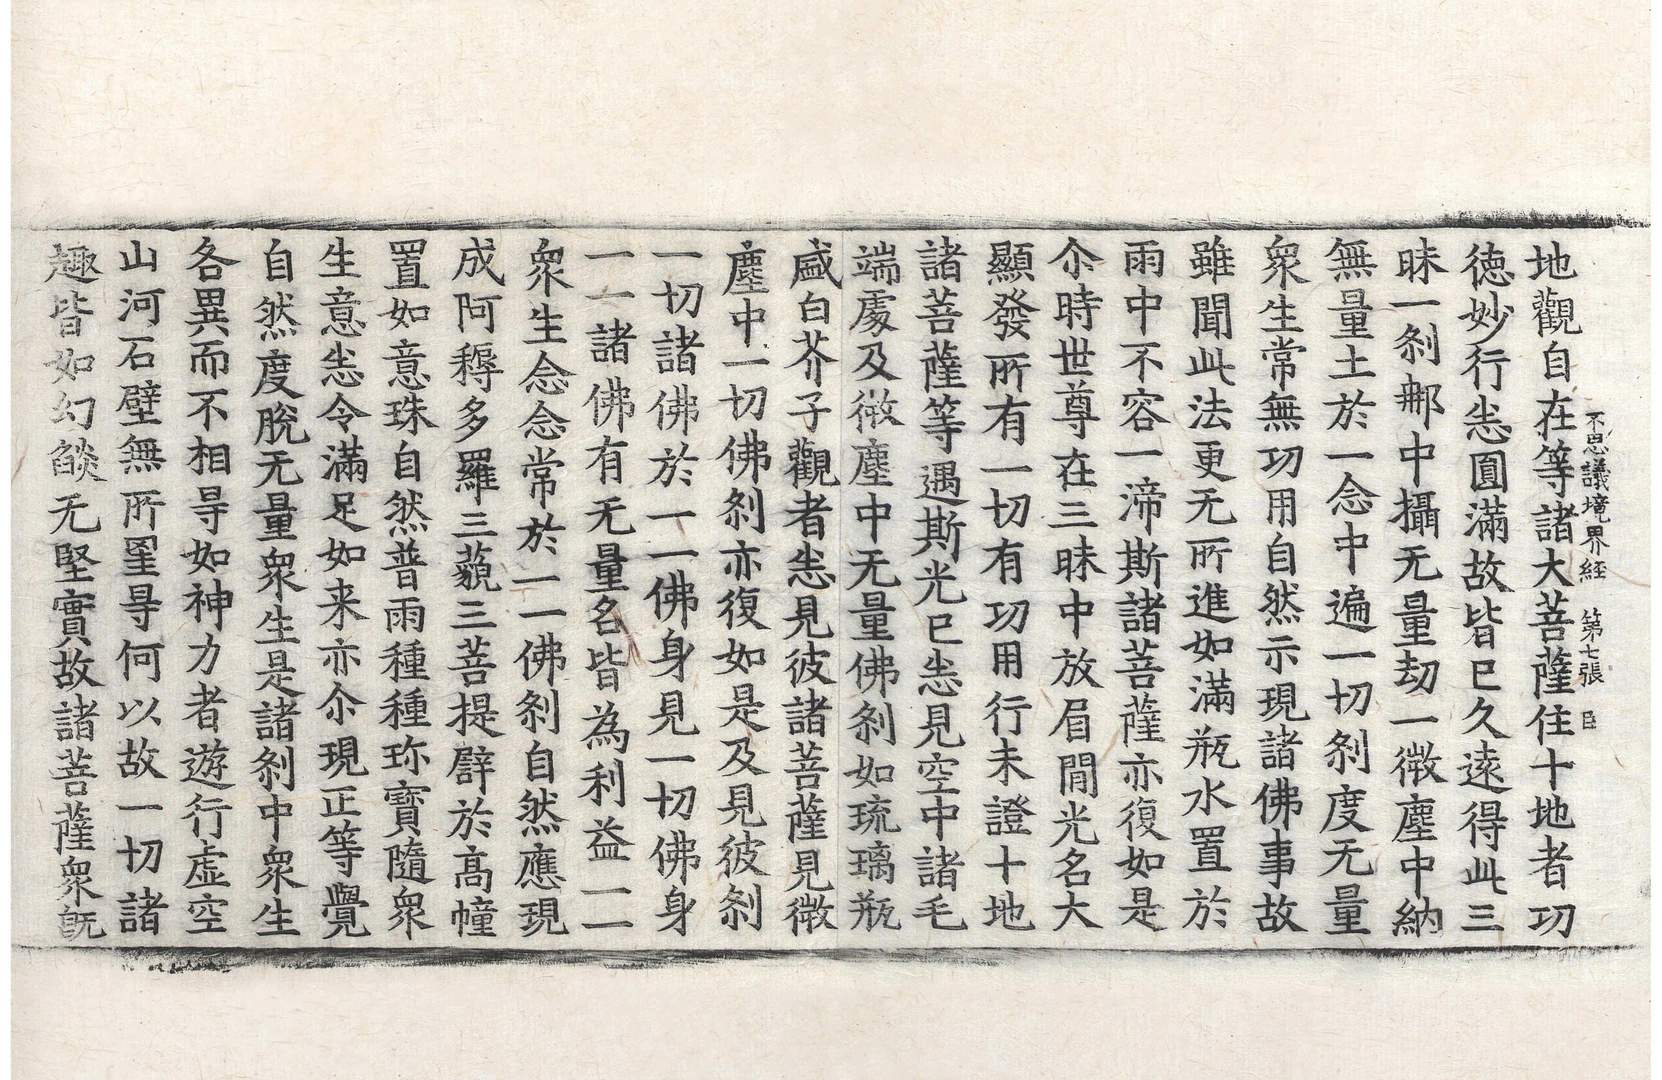 不思議境界経 第七張 臣
地觀自在等諸大菩薩住十地者功
徳妙行恙圎滿故皆已久遠得此三
昧一刹𨙻中攝无量劫一微塵中納
無量土於一念中遍一切刹度无量
衆生常無功用自然示現諸佛事故
雖聞此法更无所進如滿瓶水置於
雨中不容一渧斯諸菩薩亦復如是
尒時世尊在三昧中放眉閒光名大
顯發所有一切有功用行未證十地
諸菩薩等遇斯光已恙見空中諸毛
端處及微塵中无量佛刹如琉璃瓶
盛白芥子觀者恙見彼諸菩薩見微
塵中一切佛刹亦復如是及見彼刹
一切諸佛於一一佛身見一切佛身
一一諸佛有无量名皆為利益一一
衆生念念常於一一佛刹自然應現
成阿耨多羅三藐三菩提譬於髙幢
置如意珠自然普雨種種珎寶隨衆
生意恙令滿足如来亦尒現正等覺
自然度脫无量衆生是諸刹中衆生
各異而不相㝵如神力者遊行虚空
山河石壁無所罣㝵何以故一切諸
趣皆如幻燄无堅實故諸菩薩衆旣